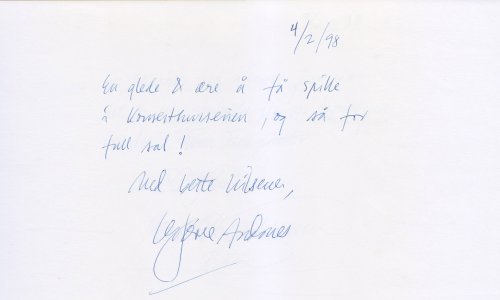 4/2/98
En glede & ære å få spille
i Konserthusserien, og så for
full sal!
Med beste hilsener,
Andsnes